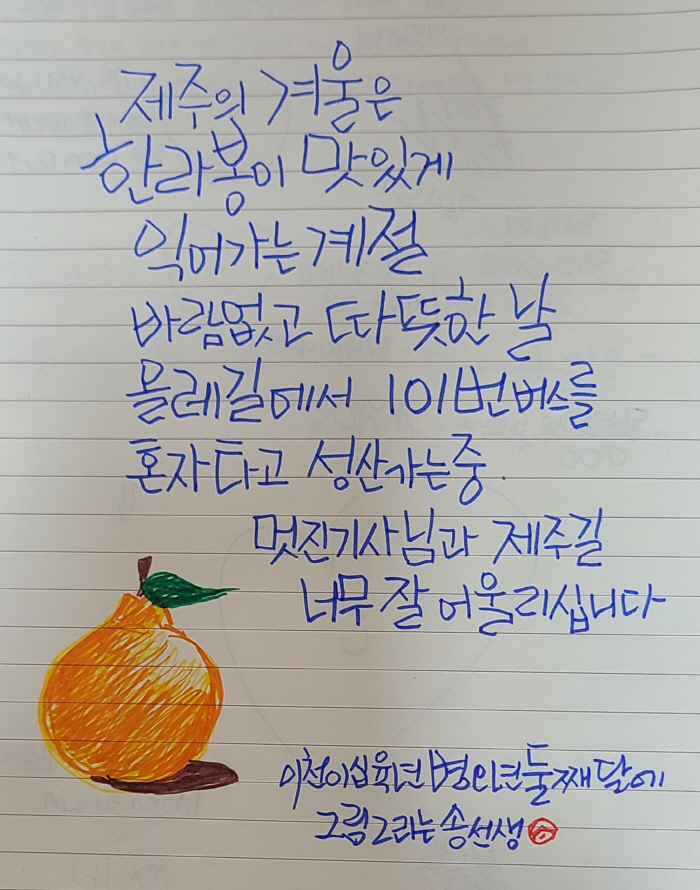 제주의 겨울은
한라봉이 맛있게
익어가는 계절
바람없고 따뜻한 날
올레길에서 101번버스를
혼자 타고 성산가는중.
멋진기사님과 제주길
너무 잘 어울리십니다
이천이십육년 병인년 둘째 달에
그림그리는 송선생